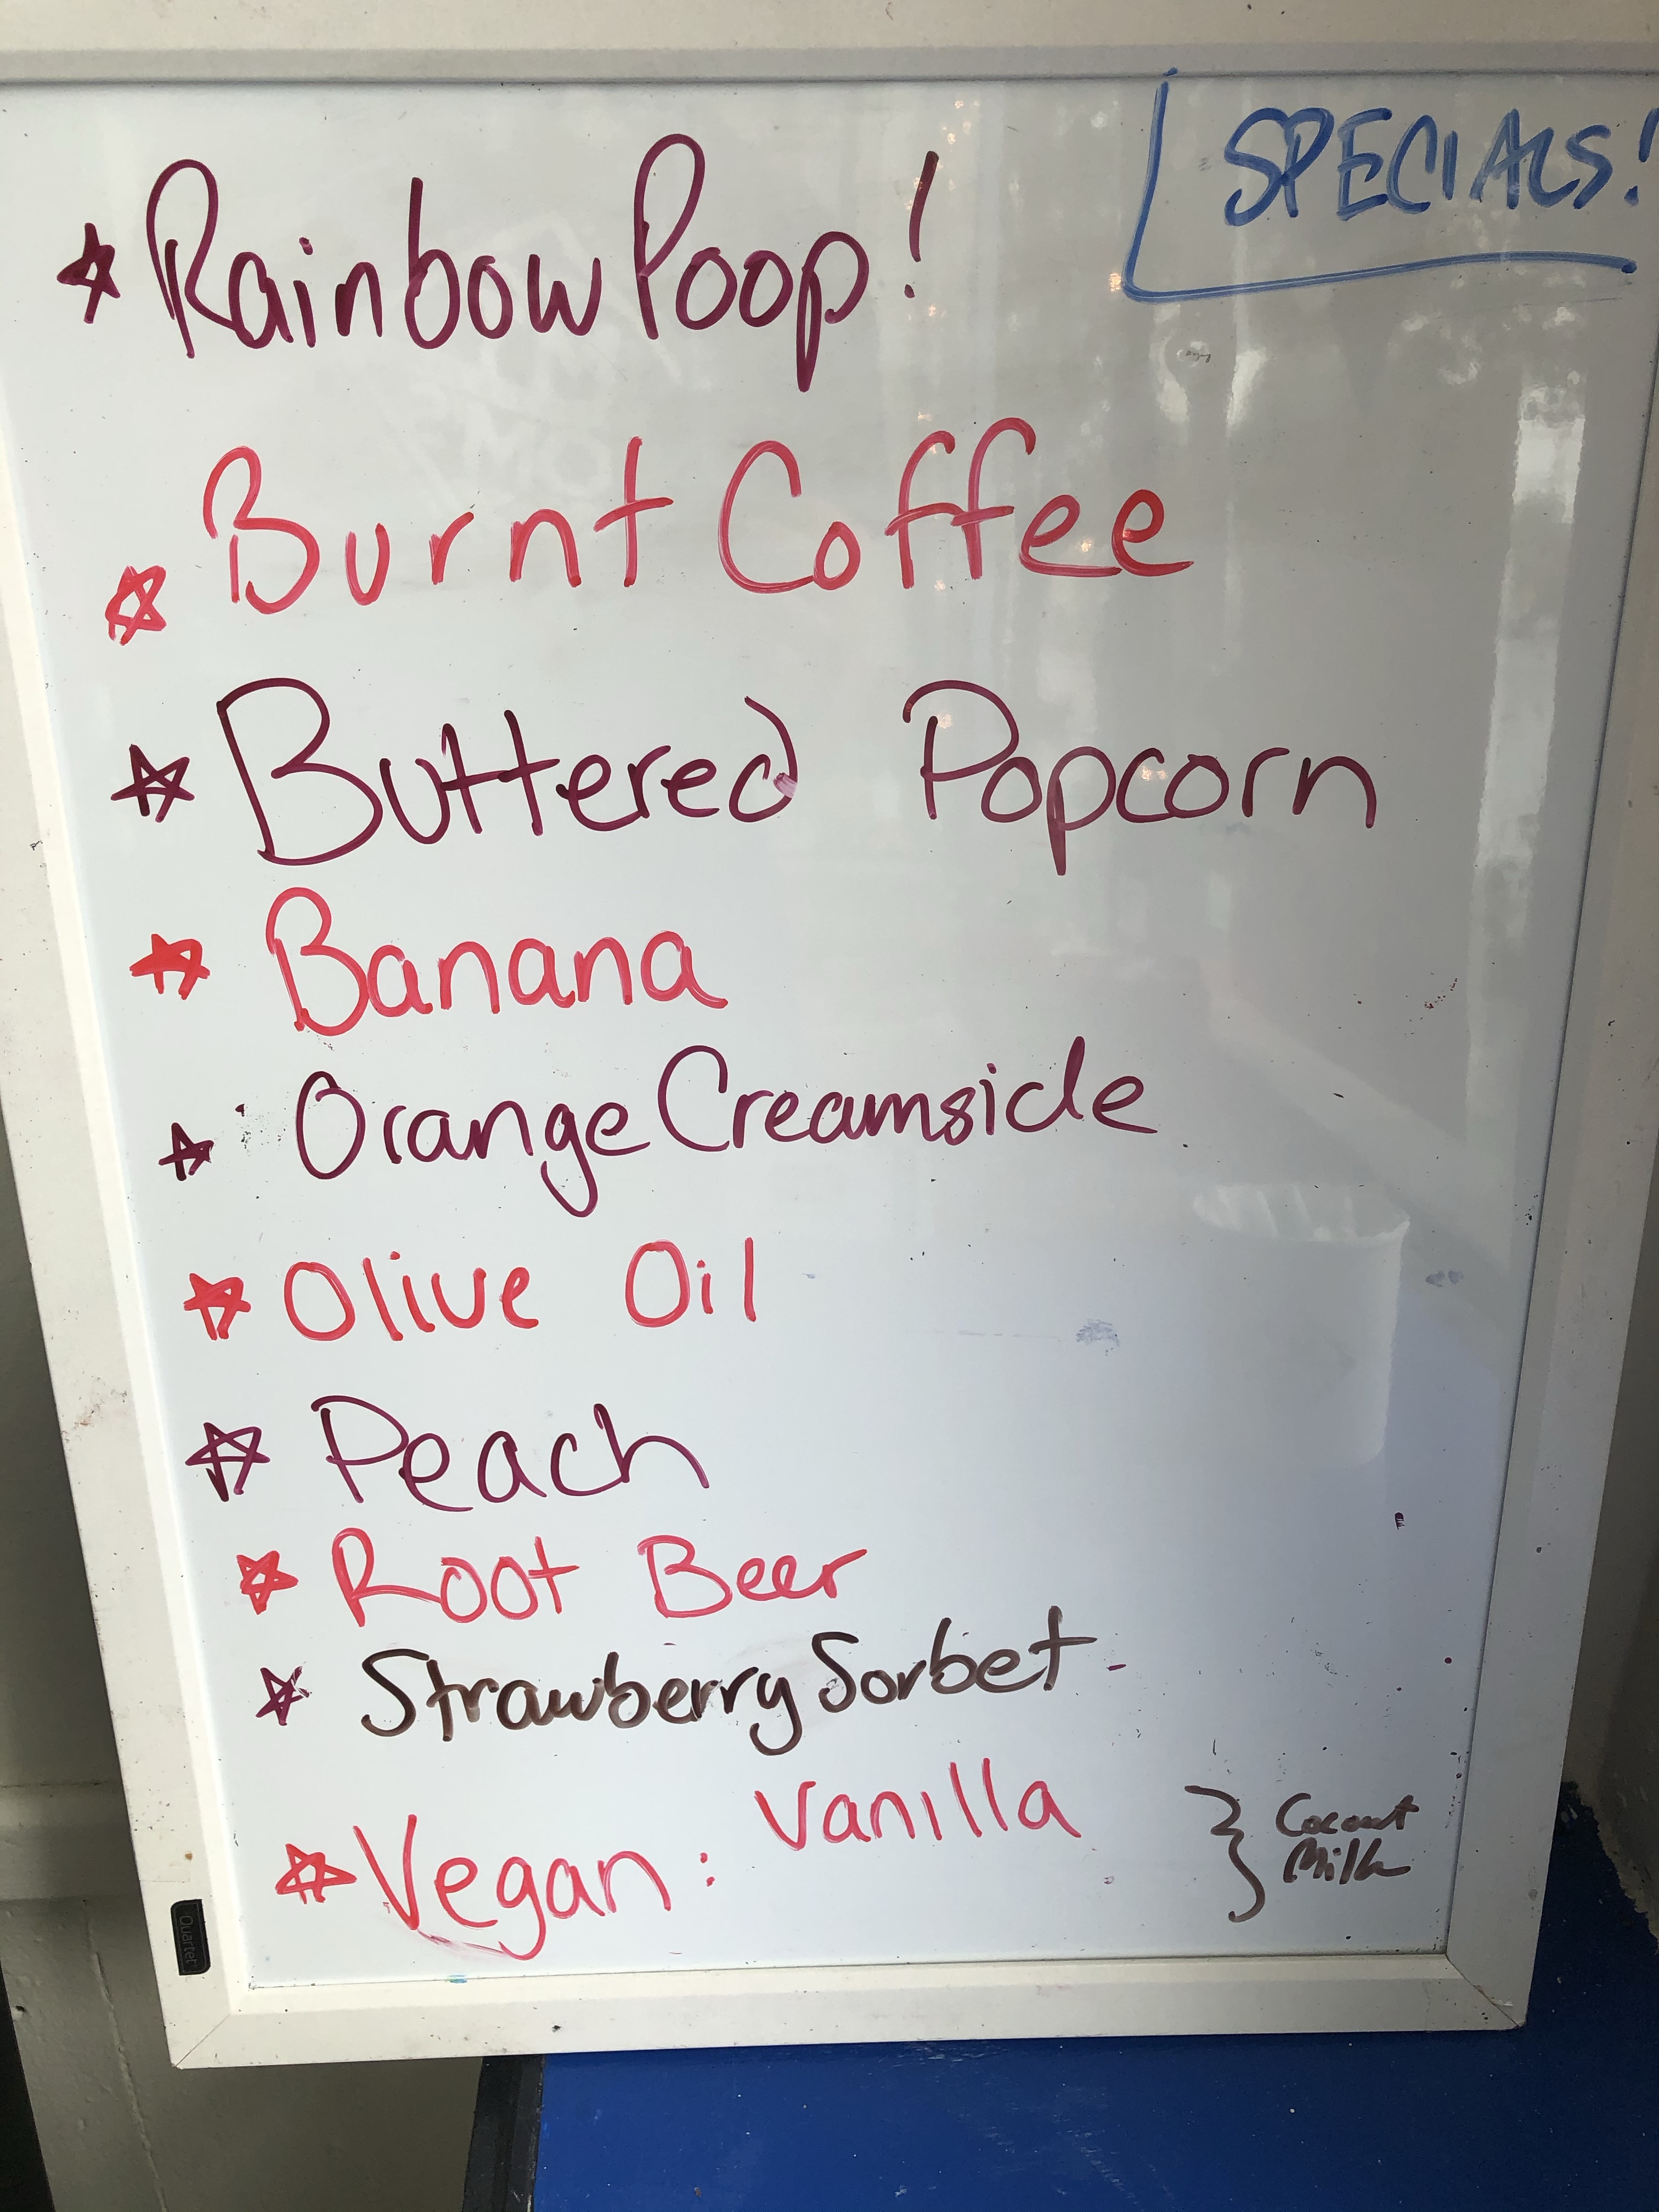 SPECIALS!
Rainbow Poop!
Burnt Coffee
Buttered Popcorn
Banana
Orange Creamsicle
Olive Oil
Peach
Root Beer
Strawberry Sorbet
Vegan: Vanilla
Coconut
Milk
Quartet